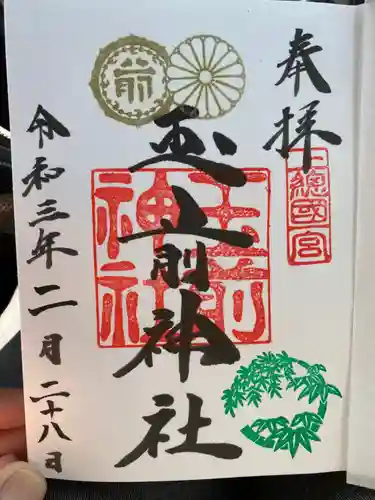 奉拝
上總國一宮
前
玉前神社
玉前
神社
令和三年二月二十八日